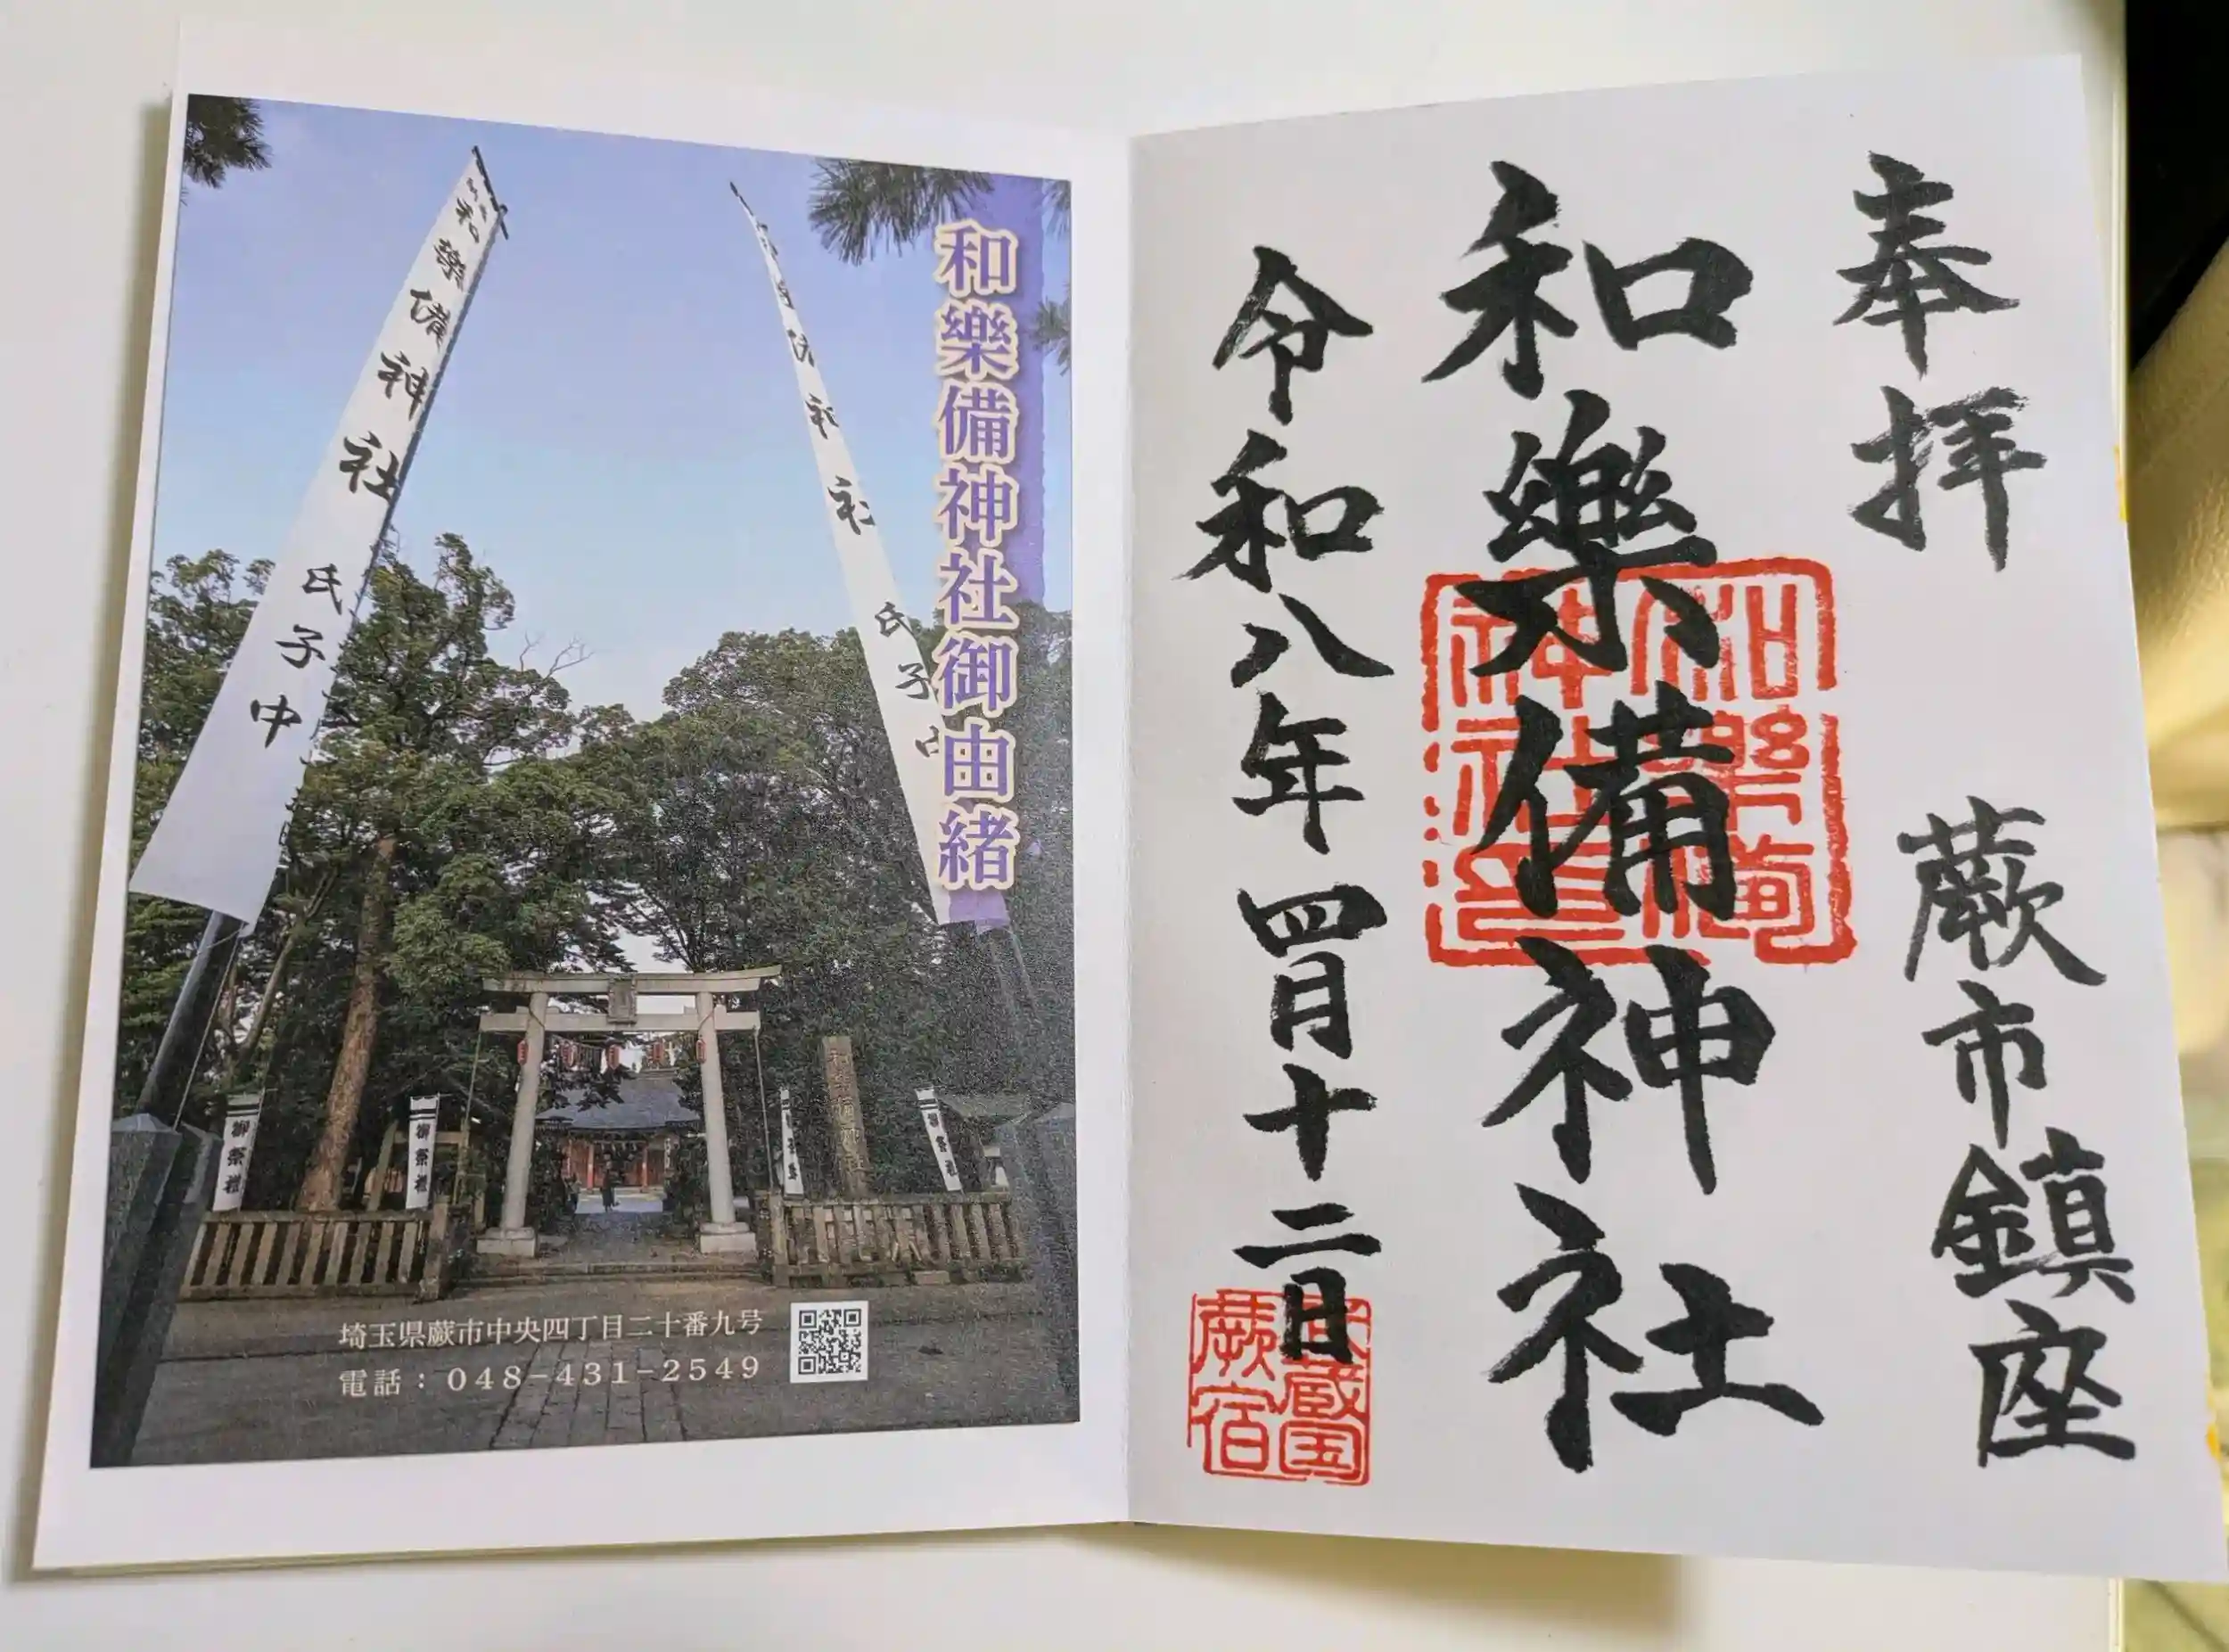 和樂備神社御由緒
和樂備神社 氏子中
氏子
御祭禮
御祭禮
埼玉県蕨市中央四丁目二十番九号
電話：048-431-2549
奉拝 蕨市鎮座
和樂備神社
和樂備神社之印
令和八年四月十二日
武蔵国蕨宿